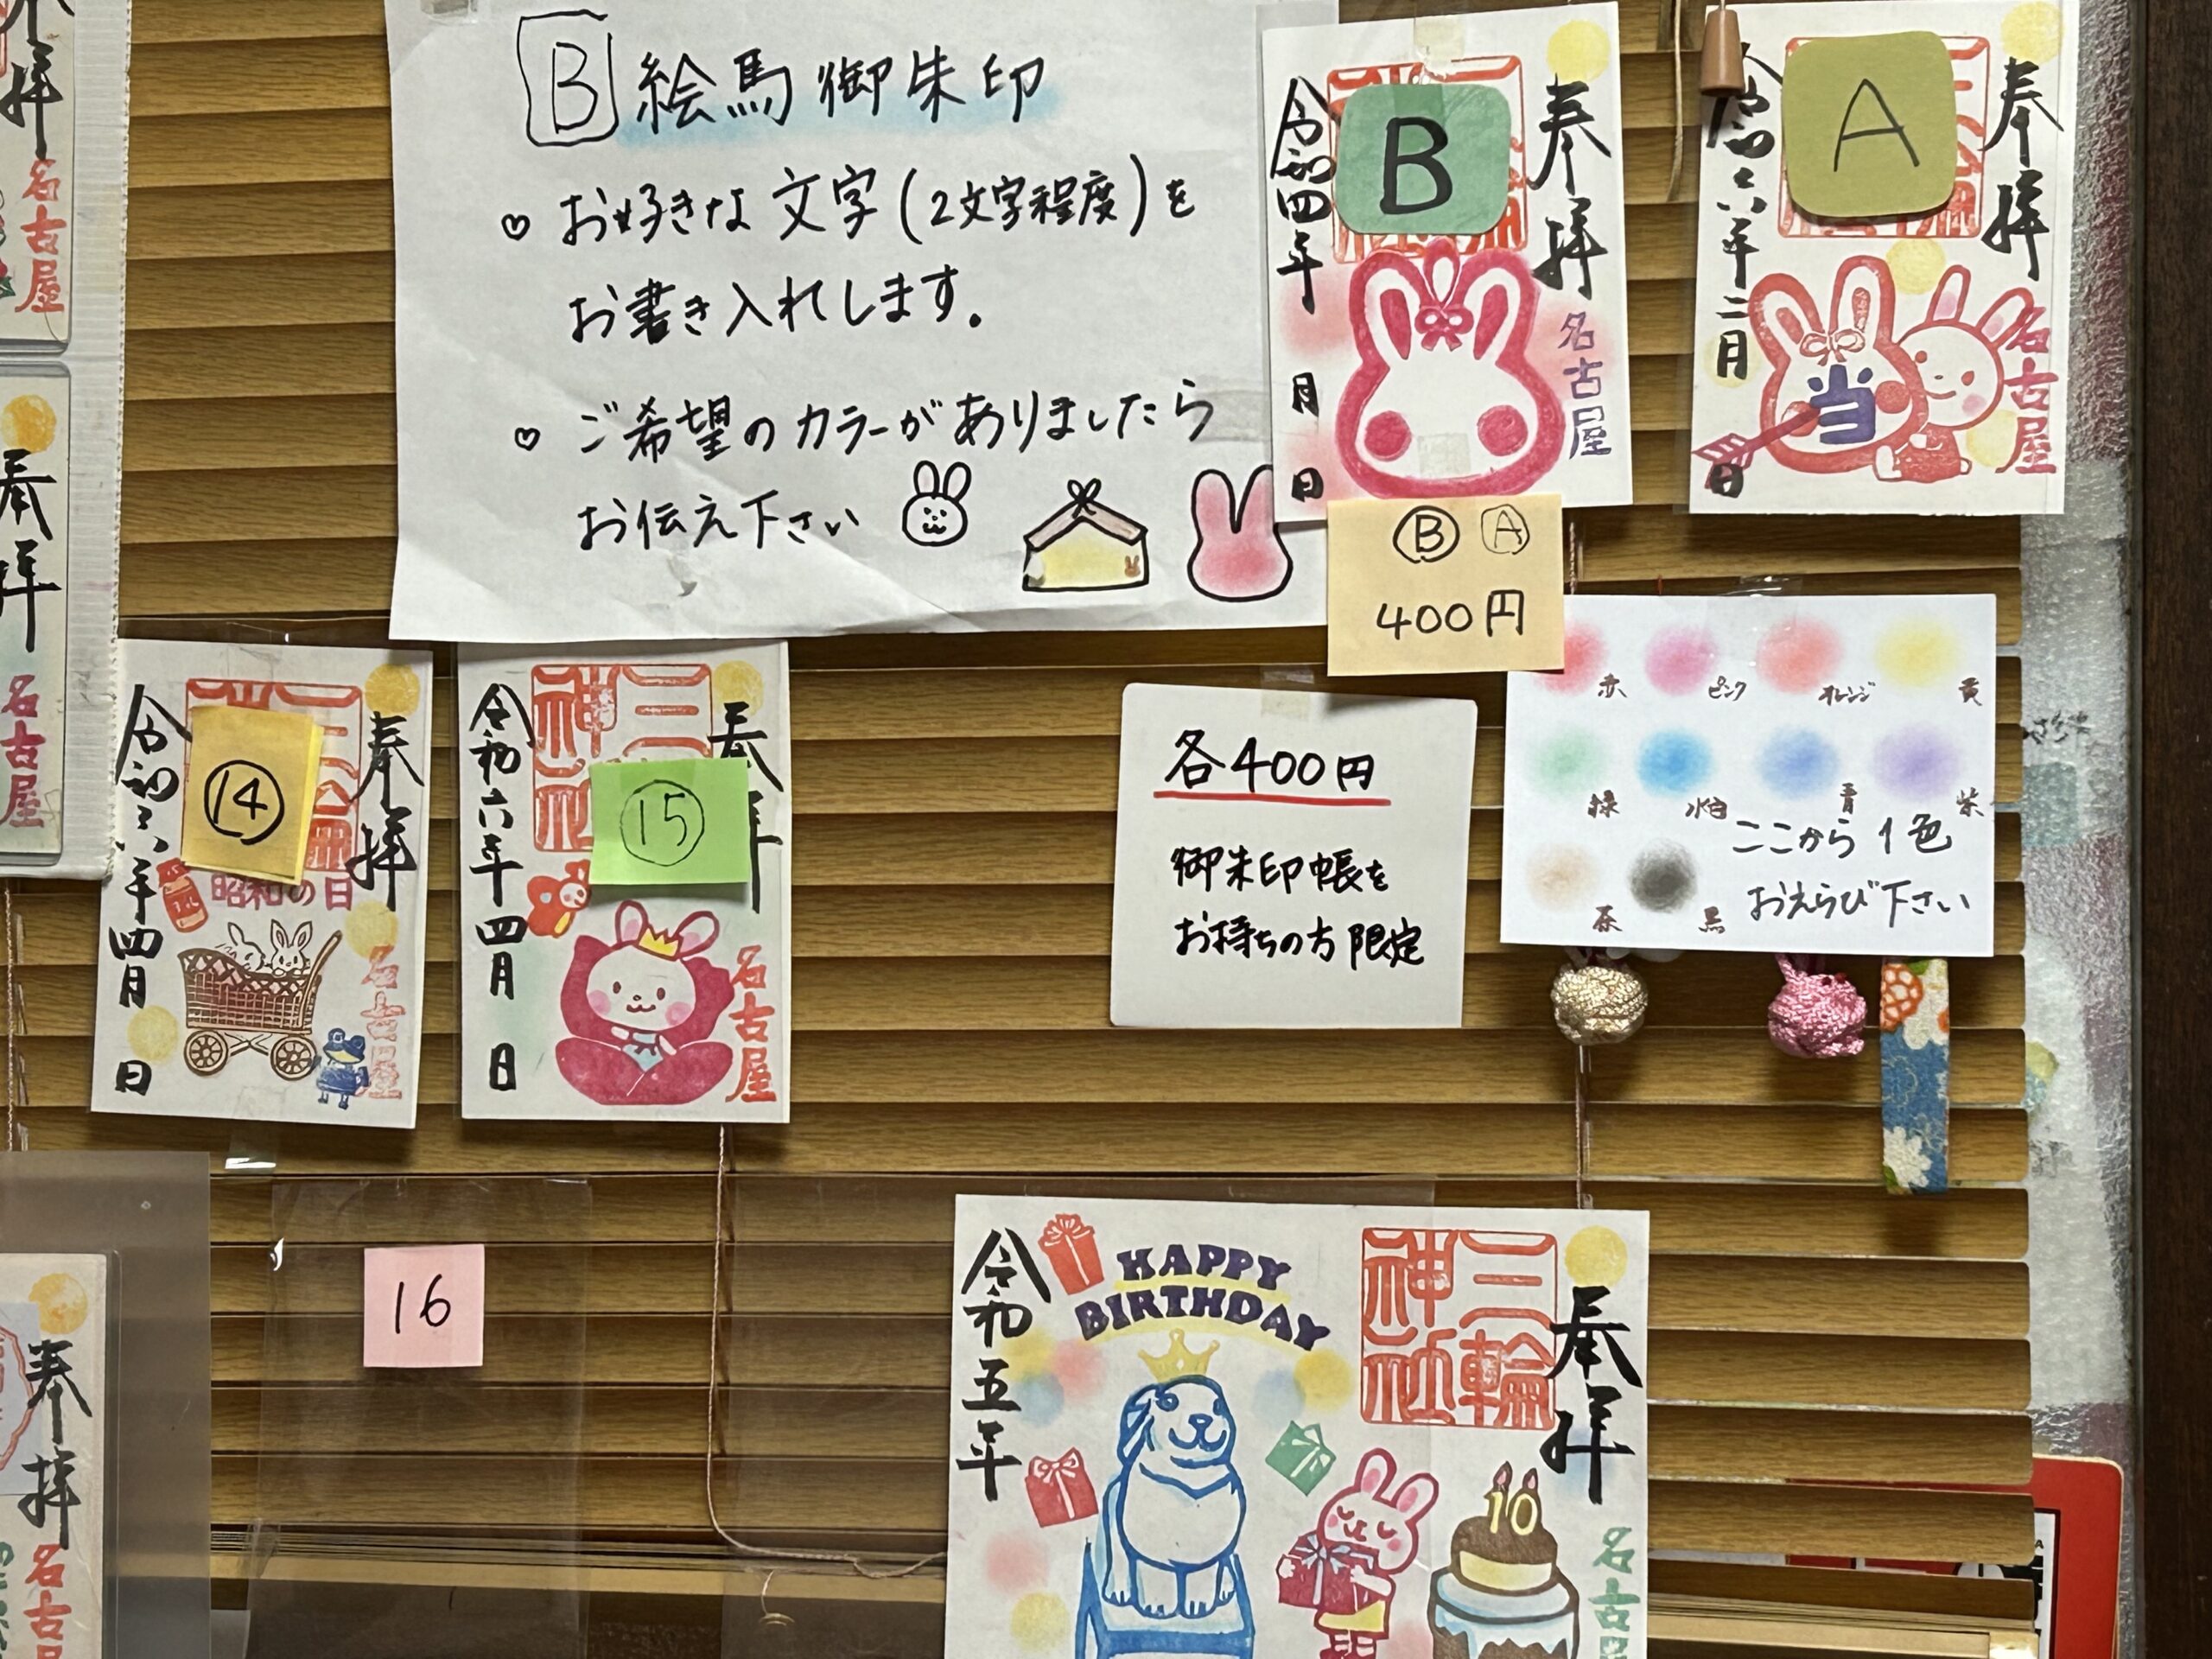 B 絵馬御朱印
♡ お好きな文字(2文字程度)を
お書き入れします。
♡ ご希望のカラーがありましたら
お伝え下さい
奉拝
名古屋
B
令和四年 月 日
奉拝
名古屋
A
当
令和六年二月 日
Ⓑ Ⓐ
400円
赤 ピンク オレンジ 黄
緑 水色 青 紫
茶 黒
ここから1色
おえらび下さい
各400円
御朱印帳を
お持ちの方限定
奉拝
名古屋
⑭
昭和の日
令和六年四月 日
奉拝
名古屋
三
神
⑮
令和六年四月 日
16
奉拝
名古屋
三輪
神社
HAPPY
BIRTHDAY
10
令和五年
拝
名古屋
奉拝
名古屋
奉拝
名古屋